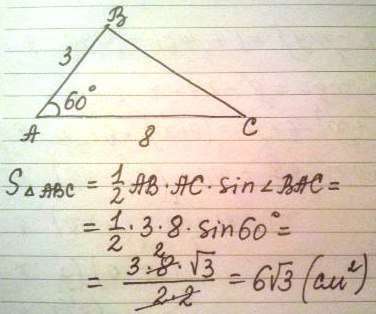 B
3
60°
A
8
C
S△ABC = 1/2 AB · AC · sin∠BAC =
= 1/2 · 3 · 8 · sin60° =
= 3 · 8 2 · √3 / 2 · 2 = 6√3 (см²)